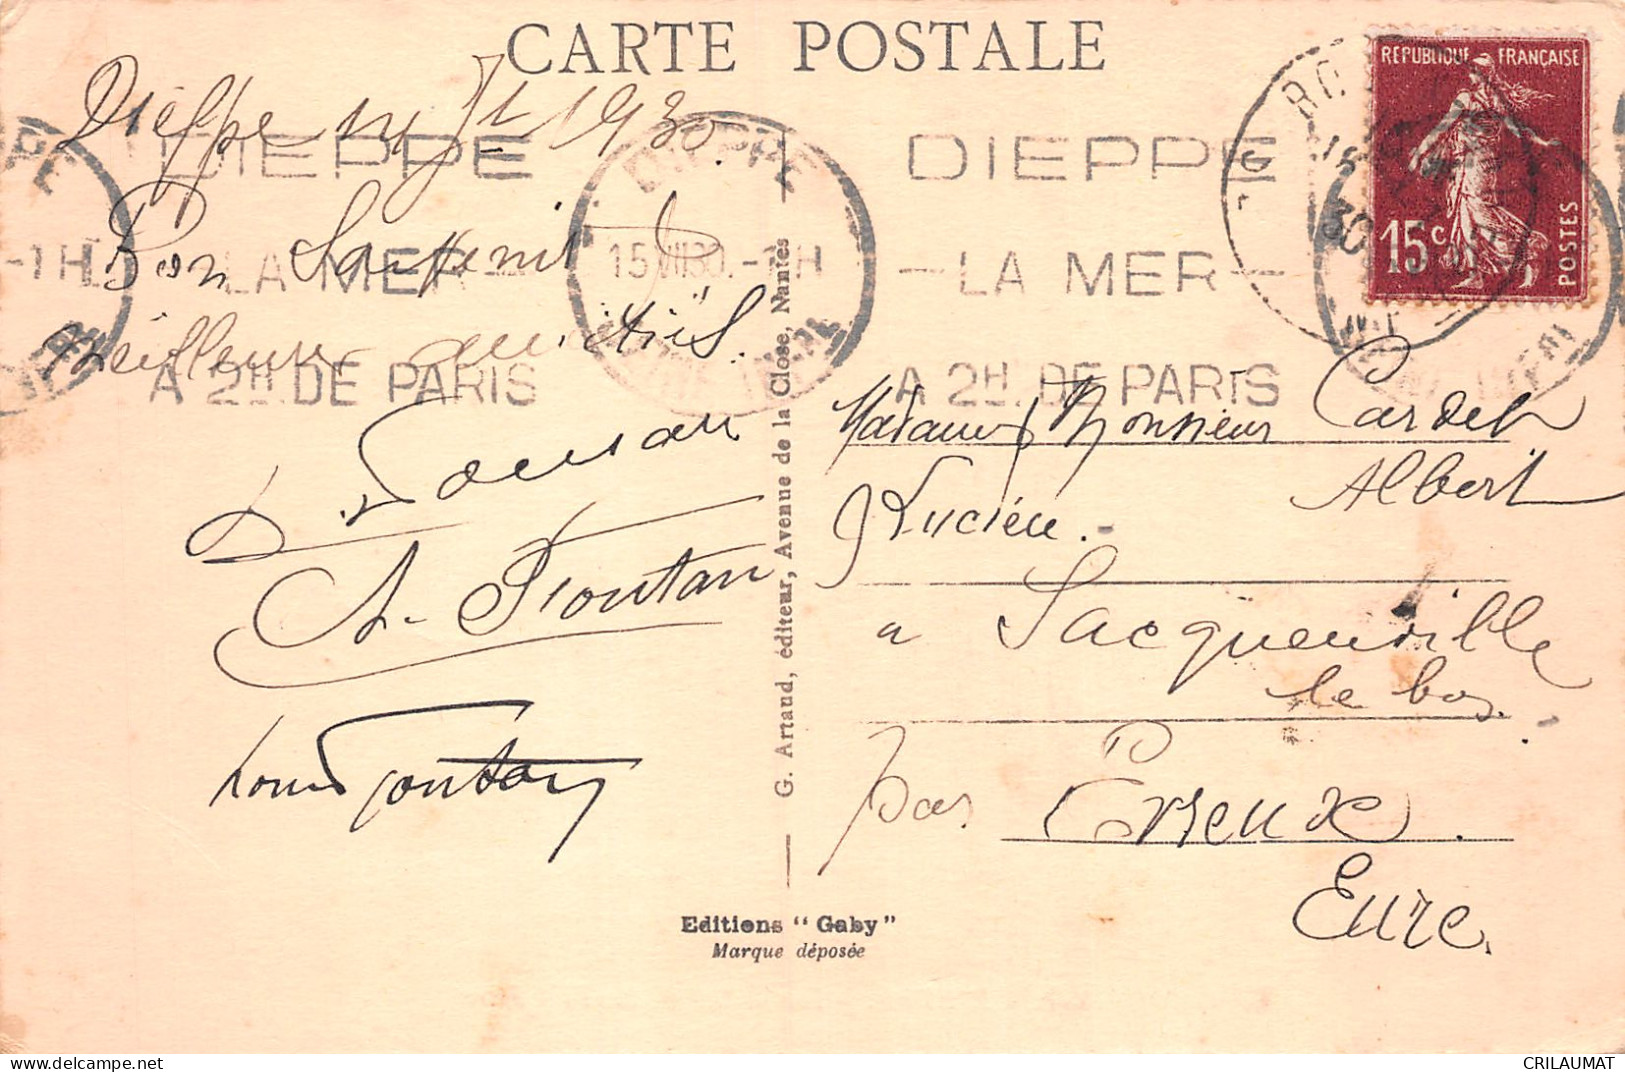 CARTE POSTALE
REPUBLIQUE FRANÇAISE
15c
POSTES
DIEPPE
LA MER
A 2H. DE PARIS
DIEPPE
15 VII 30.-1H
DIEPPE
-LA MER-
A 2H. DE PARIS
Dieppe 14 Jt 1930.
Bon
Meilleures amitiés.
A. Fontan
Louis Fontan
G. Artaud, éditeur, Avenue de la Close, Nantes
Editions “Gaby”
Marque déposée
Madame Monsieur Cardet
Albert
Lucien.
a Jacquenville
le bos
par Evreux.
Eure.
CRILAUMAT